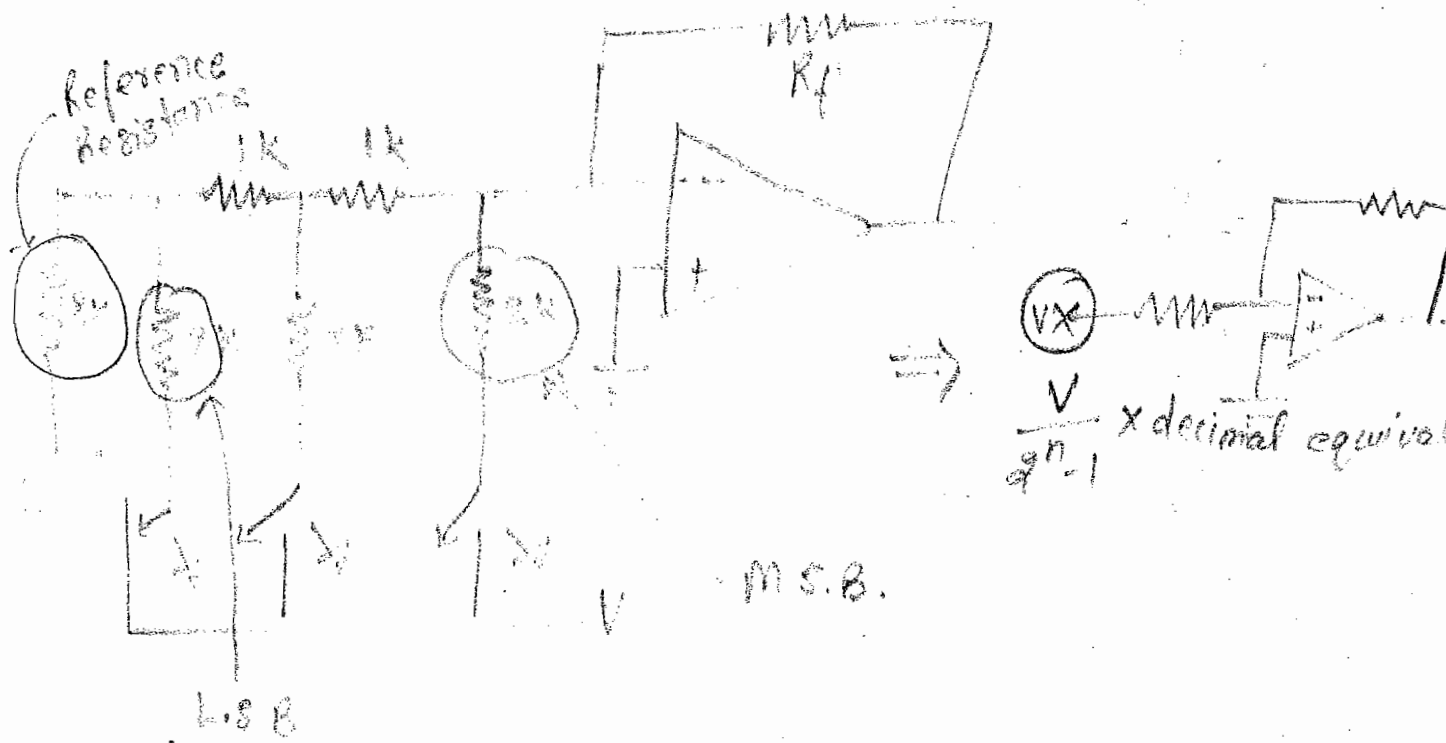 Reference
Resistance
1k 1k
Rf
-
+
2k
VX
-
+
V
2^n-1 × decimal equival
V
M S.B.
L.S B